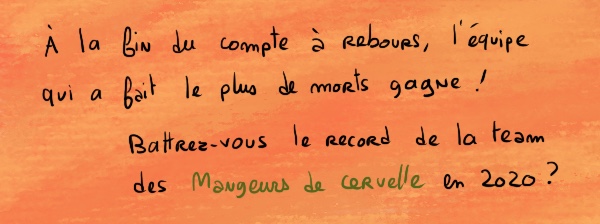 À la fin du compte à rebours, l'équipe
qui a fait le plus de morts gagne !
Battrez-vous le record de la team
des Mangeurs de cervelle en 2020 ?